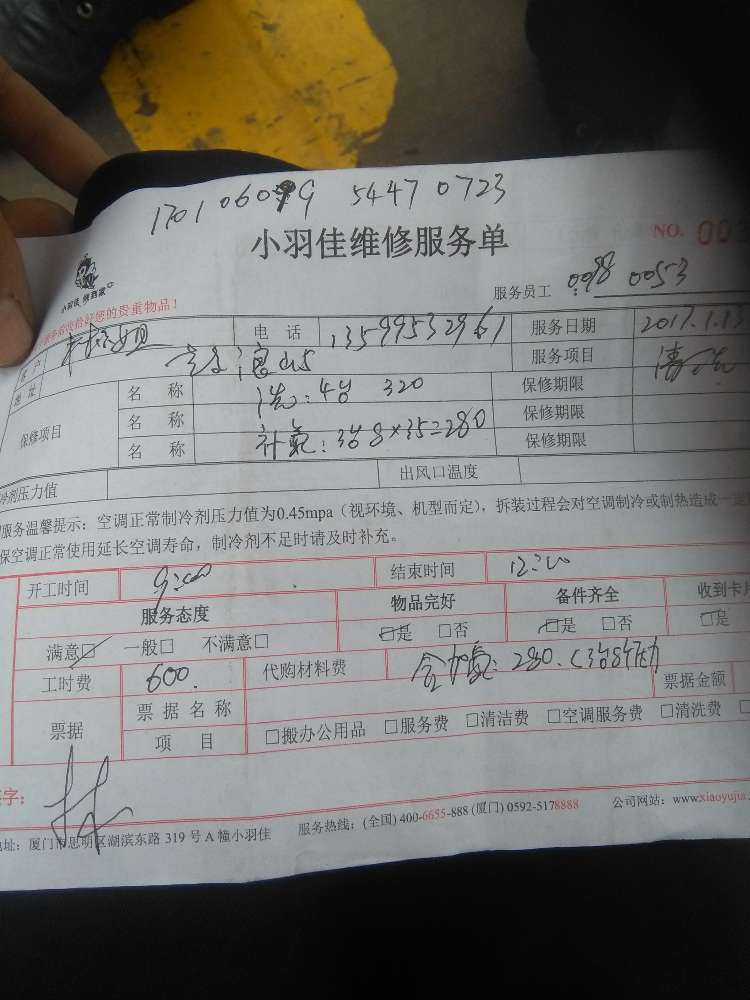 54470723
小羽佳维修服务单
NO. 00
小羽佳
服务员工 0098 0053
收拾好您的贵重物品!
客户 林小姐 电话 13599532961 服务日期 2017.1.13
地址 服务项目 清洗
保修项目 名称 洗:4台 320 保修期限
名称 保修期限
名称 补氟:3台8×35=280 保修期限
冷剂压力值 出风口温度
服务温馨提示:空调正常制冷剂压力值为0.45mpa(视环境、机型而定),拆装过程会对空调制冷或制热造成一
保空调正常使用延长空调寿命,制冷剂不足时请及时补充。
开工时间 9:00 结束时间 12:00
服务态度 物品完好 备件齐全 收到卡
满意□ 一般□ 不满意□ □是 □否 □是 □否 □是
工时费 600. 代购材料费 含加氟:280.(3台8个压力 票据金额
票据 票据名称
项目 □搬办公用品 □服务费 □清洁费 □空调服务费 □清洗费
字: 林
址:厦门市思明区湖滨东路 319 号 A 幢小羽佳 服务热线:(全国) 400-6655-888 (厦门) 0592-5178888 公司网站:www.xiaoyujia